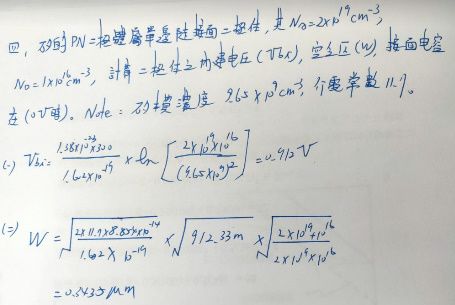 四、矽的PN二極體屬單邊陡接面二極体,其 NA=2×10^19 cm^-3,
ND=1×10^16 cm^-3, 計算二極体之內建電压(Vbi), 空乏区(W), 接面电容
在(0V時)。Note: 矽 濃度 9.65×10^9 cm^-3, 介電常數 11.9。
(一) Vbi= 1.38×10^-23×300 / 1.602×10^-19 × ln [ 2×10^19×10^16 / (9.65×10^9)^2 ] = 0.912 V
(二) W = √(2×11.9×8.854×10^-14 / 1.602×10^-19) × √(912.33m) × √(2×10^19+10^16 / 2×10^19×10^16)
=0.3435 μm